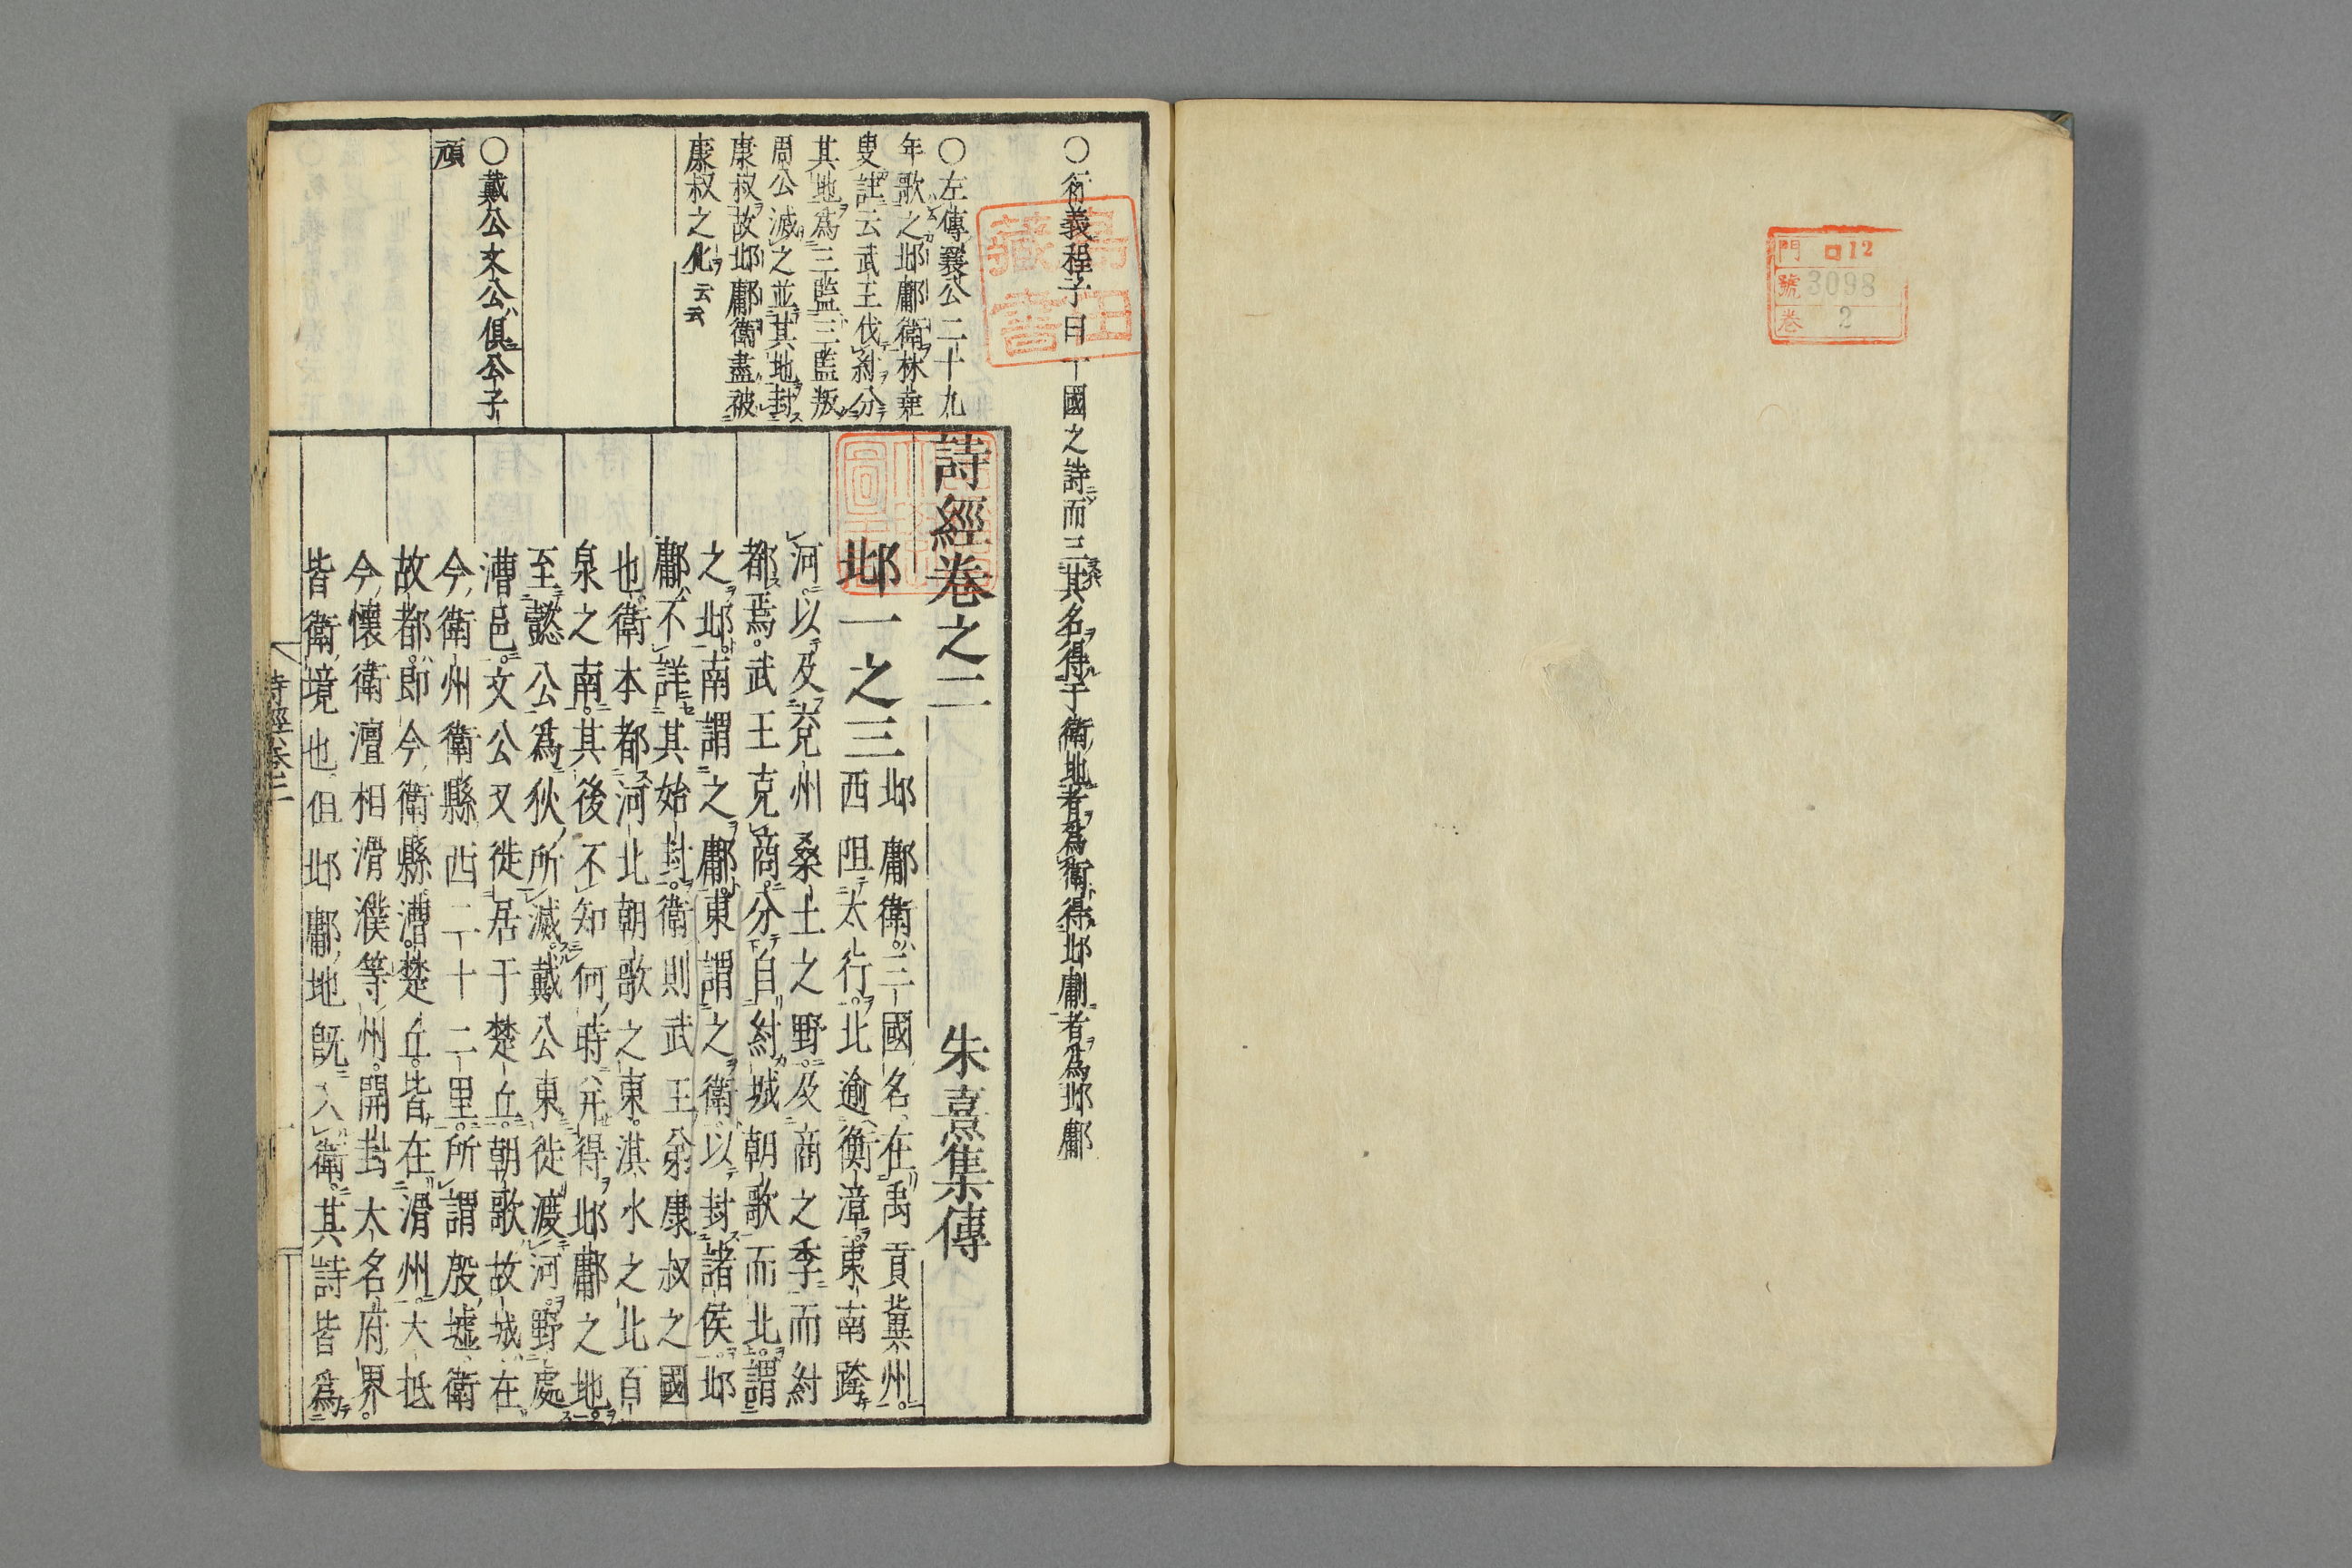 門 ロ12
號 3098
卷 2
○衍義程子曰一國之詩而三其名得于衛地者爲衛得邶鄘者爲邶鄘
○左傳襄公二十九
年歌之邶鄘衛林堯
叟註云武王伐紂分
其地爲三監三監叛
周公滅之並其地封
康叔故邶鄘衛盡被
康叔之化云云
○戴公文公俱公子
頑
詩經卷之二 朱熹集傳
邶一之三
邶鄘衛三國名在禹貢冀州
西阻太行北逾衡漳東南跨
河以及兗州桑土之野及商之季而紂
都焉武王克商分自紂城朝歌而北謂
之邶南謂之鄘東謂之衛以封諸侯邶
鄘不詳其始封衛則武王弟康叔之國
也衛本都河北朝歌之東淇水之北百
泉之南其後不知何時并得邶鄘之地
至懿公爲狄所滅戴公東徙渡河野處
漕邑文公又徙居于楚丘朝歌故城在
今衛州衛縣西二十二里所謂殷墟衛
故都即今衛縣漕楚丘皆在滑州大抵
今懷衛澶相滑濮等州開封大名府界
皆衛境也但邶鄘地既入衛其詩皆爲
詩經卷二 一
藏書